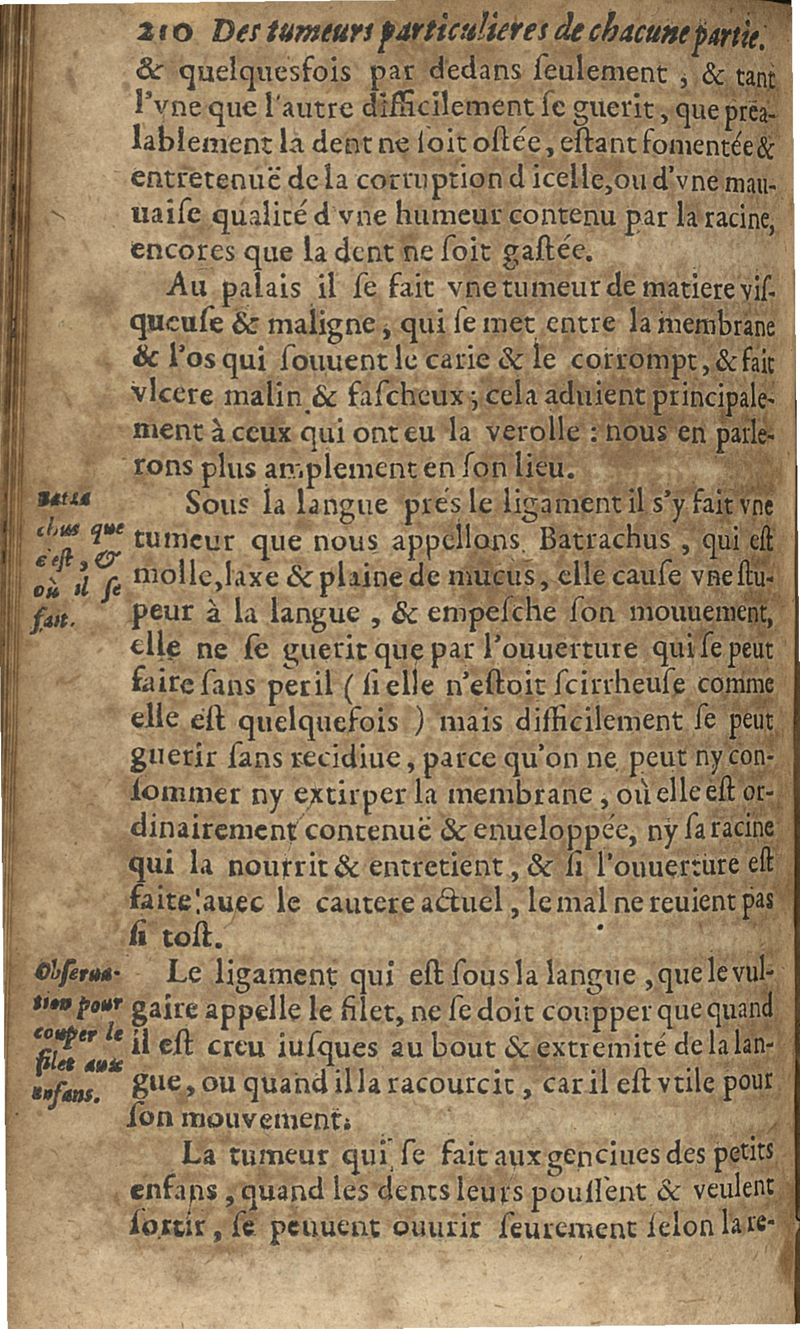 210 Des tumeurs particulieres de chacune partie.
& quelquesfois par dedans ſeulement, & tant
l'vne que l'autre difficilement ſe guerit, que prea-
lablement la dent ne ſoit oſtée, eſtant fomentée &
entretenuë de la corruption d icelle, ou d'vne mau-
uaiſe qualité d vne humeur contenu par la racine,
encores que la dent ne ſoit gaſtée.
Au palais il ſe fait vne tumeur de matiere viſ-
queuſe & maligne, qui ſe met entre la membrane
& l'os qui ſouuent le carie & le corrompt, & fait
vlcere malin & faſcheux; cela aduient principale-
ment à ceux qui ont eu la verolle : nous en parle-
rons plus amplement en ſon lieu.
Batra
chus que
c'eſt, &
où il ſe
fait.
Sous la langue prés le ligament il s'y fait vne
tumeur que nous appellons Batrachus, qui eſt
molle, laxe & plaine de mucus, elle cauſe vne ſtu-
peur à la langue, & empeſche ſon mouuement,
elle ne ſe guerit que par l'ouuerture qui ſe peut
faire ſans peril ( ſi elle n'eſtoit ſcirrheuſe comme
elle eſt quelquefois ) mais difficilement ſe peut
guerir ſans recidiue, parce qu'on ne peut ny con-
ſommer ny extirper la membrane, où elle eſt or-
dinairement contenuë & enueloppée, ny ſa racine
qui la nourrit & entretient, & ſi l'ouuerture eſt
faite auec le cautere actuel, le mal ne reuient pas
ſi toſt.
Obſerua-
tion pour
couper le
filet aux
enfans.
Le ligament qui eſt ſous la langue, que le vul-
gaire appelle le filet, ne ſe doit coupper que quand
il est creu iuſques au bout & extremité de la lan-
gue, ou quand il la racourcit, car il eſt vtile pour
ſon mouvement.
La tumeur qui ſe fait aux genciues des petits
enfans, quand les dents leurs pouſſent & veulent
ſortir, ſe peuuent ouurir ſeurement ſelon la re-